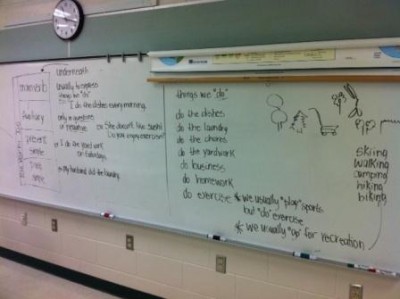 underneath
main verb
usually to express
things we "do"
ex I do the dishes every morning.
auxiliary
only in questions
or negative ex She doesn't like sushi!
Do you enjoy exercise?
present
simple
ex I do the yard work
on Saturdays.
past
simple
ex My husband did the laundry
things we "do"
do the dishes
do the laundry
do the chores
do the yardwork
do business
do homework
do exercise * we usually "play" sports
but "do" exercise
* we usually "go" for recreation
skiing
walking
camping
hiking
biking